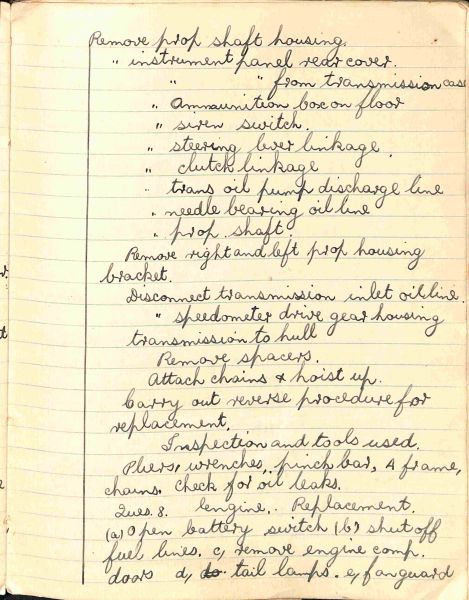 Remove prop shaft housing.
" instrument panel rear cover.
" " from transmission case
" Ammunition box on floor
" siren switch.
" steering lever linkage
" clutch linkage
" trans oil pump discharge line
" needle bearing oil line
" prop. shaft.
Remove right and left prop housing
bracket.
Disconnect transmission inlet oil line.
" speedometer drive gear housing
transmission to hull
Remove spacers.
Attach chains & hoist up.
Carry out reverse procedure for
replacement.
Inspection and tools used.
Pliers, wrenches, pinch bar, A frame,
chains. Check for oil leaks.
Ques. 8. Engine. Replacement.
(a) Open battery switch (b) shut off
fuel lines. c, remove engine comp.
doors d, do tail lamps. e, fan guard